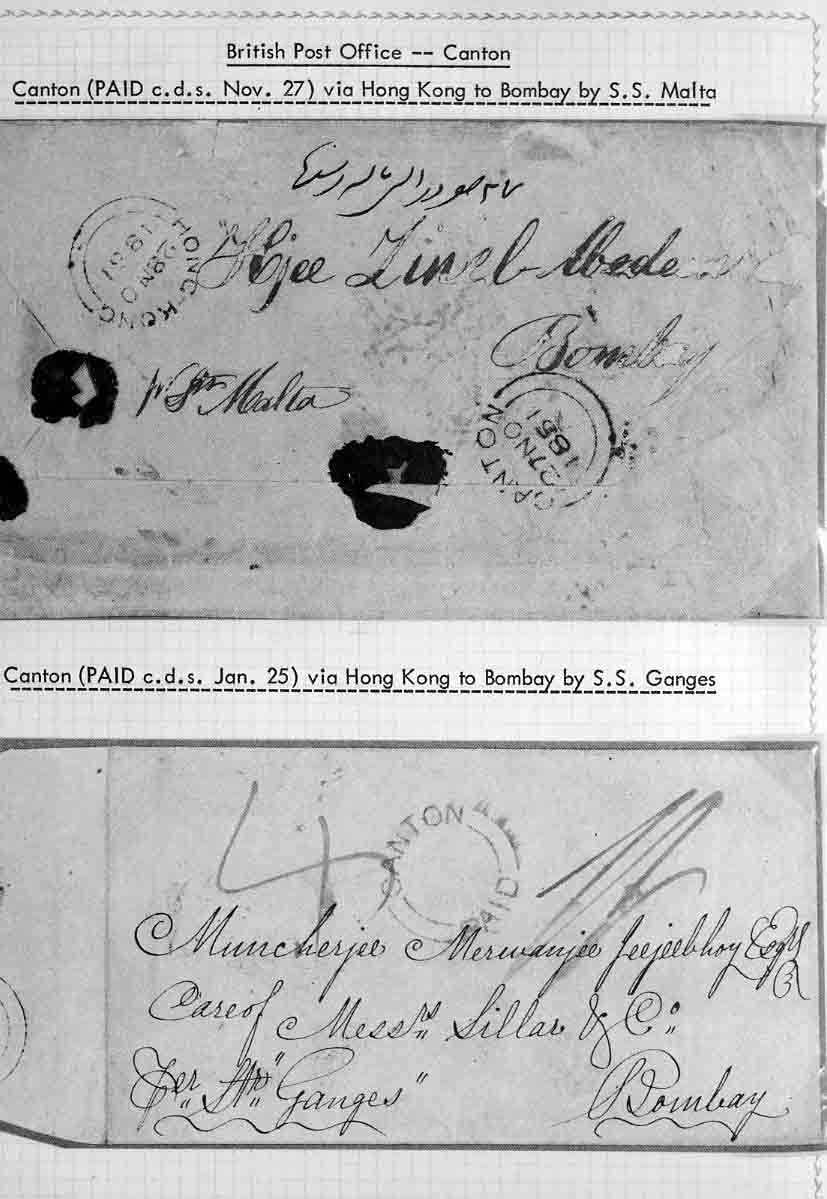 British Post Office -- Canton
Canton (PAID c.d.s. Nov. 27) via Hong Kong to Bombay by S.S. Malta
HONG-KONG
28 NO
1851
Bombay
Malta
CANTON
27 NO
1851
Canton (PAID c.d.s. Jan. 25) via Hong Kong to Bombay by S.S. Ganges
4
CANTON
PAID
Muncherjee Merwanjee Jeejeebhoy Esqr
Care of Messrs Sillar & Co
Per Str "Ganges"
Bombay